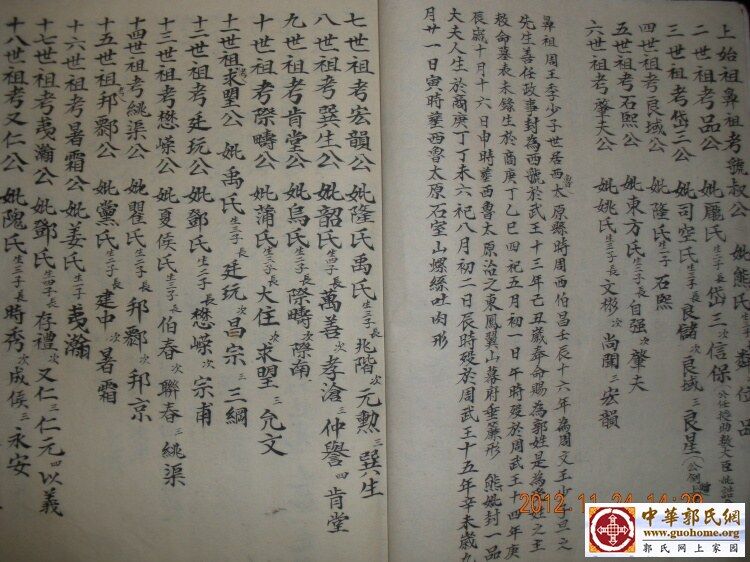 上始祖鼻祖考虢叔公 妣熊氏
二世祖考品公 妣龐氏生二子長岱三次信保
三世祖考岱三公 妣司空氏生三子長良儲次良域三良星
四世祖考良域公 妣隆氏生子石熙
五世祖考石熙公 妣東方氏生二子長自强次肇夫
六世祖考肇夫公 妣姚氏生三子長文彬次尚閩三宏韻
鼻祖周王季少子世居西太原縣時周西伯昌壬辰十六年為周文王少旦之
先生善任政事封為西虢於武王十三年己丑歲奉命賜為郭姓是為姓之王
極命墓表未錄生於商庚丁乙巳四祀五月初一日午時歿於周武王十四年庚
辰歲十月十六日申時葬西魯太原治之東鳳翼山幕府垂簾形 熊妣封一品
大夫人生於商庚丁丁未六祀八月初二日辰時歿於周武王十五年辛未歲九
月廿一日寅時葬西魯太原石室山螺絲吐肉形
七世祖考宏韻公 妣隆氏禹氏生三子長兆階次元勲三巽生
八世祖考巽生公 妣韶氏生四子長萬善次孝滄三仲譽四肯堂
九世祖考肯堂公 妣烏氏生二子長際疇次際南
十世祖考際疇公 妣蒲氏生三子長大任次求盟三允文
十一世祖考求盟公 妣禹氏生三子長廷玩次昌宗三三綱
十二世祖考廷玩公 妣鄧氏生二子長懋嶸次宗甫
十三世祖考懋嶸公 妣夏侯氏生三子長伯春次聯春三姚渠
十四世祖考姚渠公 妣翟氏生二子長邦鄹次邦京
十五世祖考邦鄹公 妣黨氏生二子長建中次暑霜
十六世祖考暑霜公 妣姜氏生子夷瀚
十七世祖考夷瀚公 妣鄧氏生四子長存禮次又仁三仁元四以義
十八世祖考又仁公 妣隗氏生三子長時秀次成侯三永安
2012.11.24 14:29
中華郭氏網
www.guohome.org
郭氏网上家园